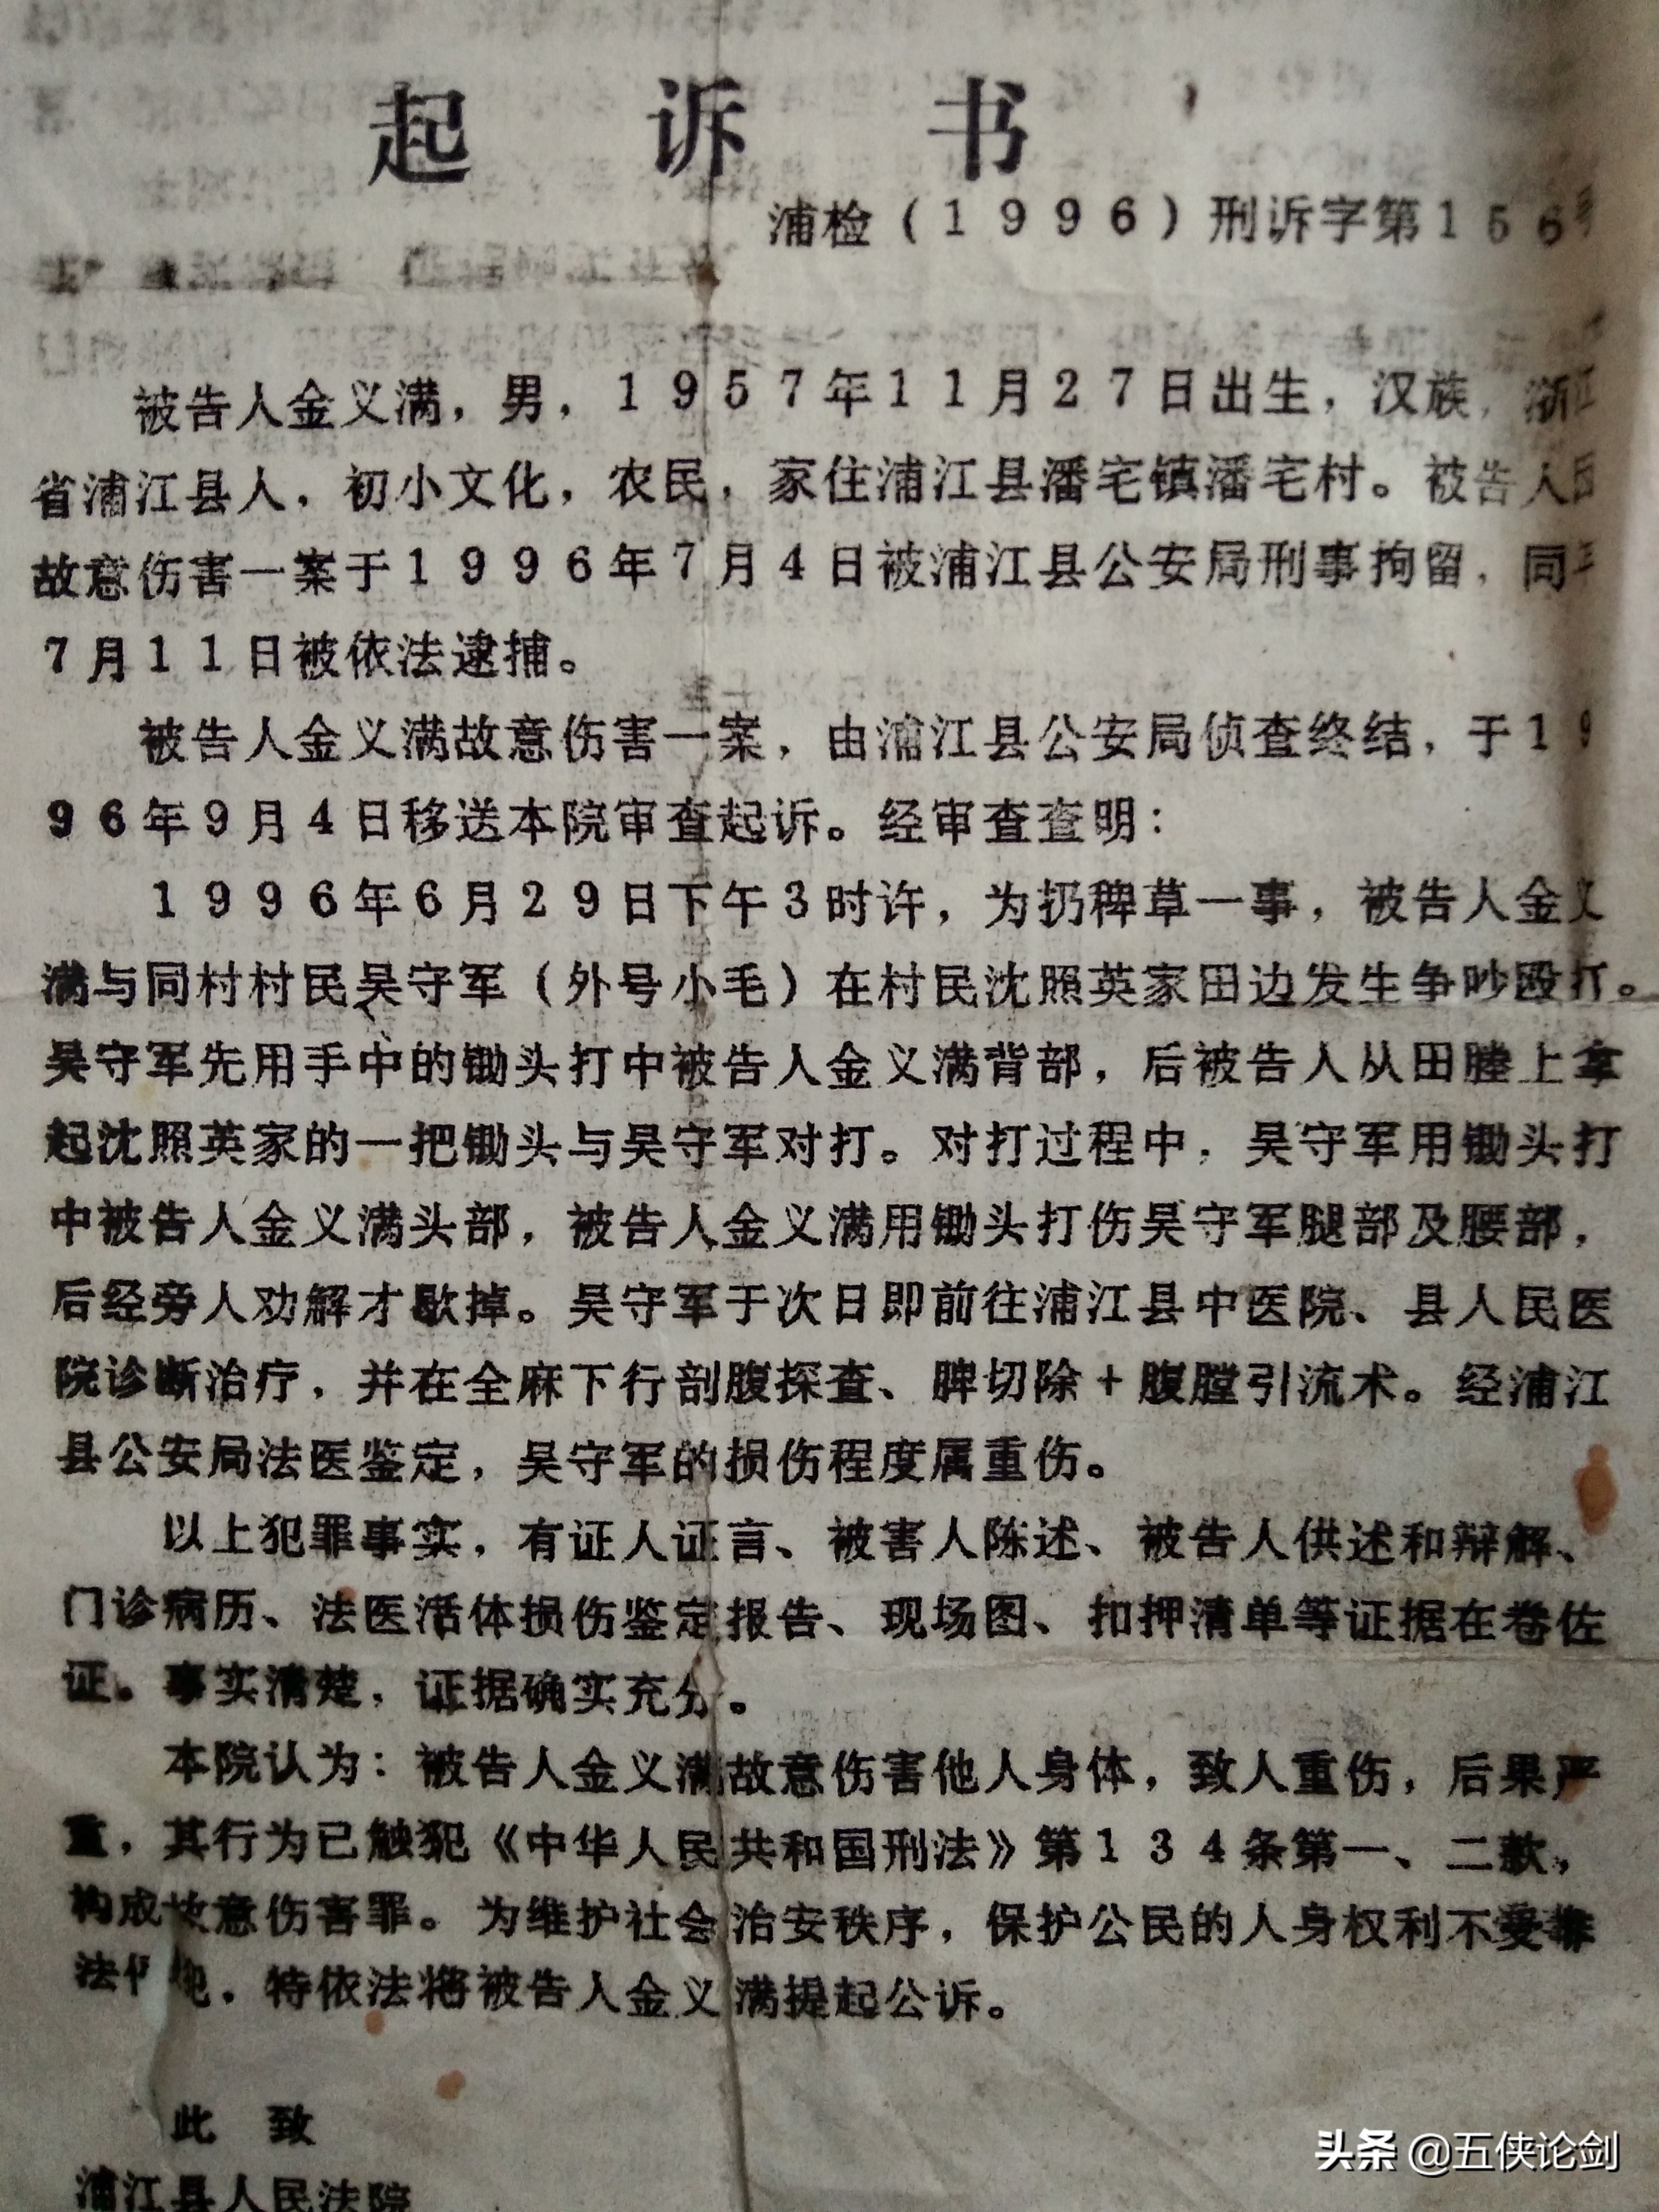 起诉书
浦检(1996)刑诉字第156号
被告人金义满，男，1957年11月27日出生，汉族，浙江
省浦江县人，初小文化，农民，家住浦江县潘宅镇潘宅村。被告人因
故意伤害一案于1996年7月4日被浦江县公安局刑事拘留，同年
7月11日被依法逮捕。
被告人金义满故意伤害一案，由浦江县公安局侦查终结，于19
96年9月4日移送本院审查起诉。经审查查明：
1996年6月29日下午3时许，为扔稗草一事，被告人金义
满与同村村民吴守军（外号小毛）在村民沈照英家田边发生争吵殴打。
吴守军先用手中的锄头打中被告人金义满背部，后被告人从田塍上拿
起沈照英家的一把锄头与吴守军对打。对打过程中，吴守军用锄头打
中被告人金义满头部，被告人金义满用锄头打伤吴守军腿部及腰部，
后经旁人劝解才歇掉。吴守军于次日即前往浦江县中医院、县人民医
院诊断治疗，并在全麻下行剖腹探查、脾切除+腹膛引流术。经浦江
县公安局法医鉴定，吴守军的损伤程度属重伤。
以上犯罪事实，有证人证言、被害人陈述、被告人供述和辩解、
门诊病历、法医活体损伤鉴定报告、现场图、扣押清单等证据在卷佐
证。事实清楚，证据确实充分。
本院认为：被告人金义满故意伤害他人身体，致人重伤，后果严
重，其行为已触犯《中华人民共和国刑法》第134条第一、二款，
构成故意伤害罪。为维护社会治安秩序，保护公民的人身权利不受非
法，特依法将被告人金义满提起公诉。
此致
浦江县人民法院
头条 @五侠论剑